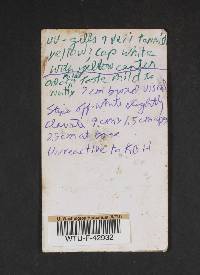 UV - gills
yellow? cap white
with yellow center
odor taste mild to
nutty 7cm broad viscid
Stipe off-white slightly
clavate 9cm x 1.5cm apex
2.5cm at base
Unreactive to KOH
WTU-F-42932